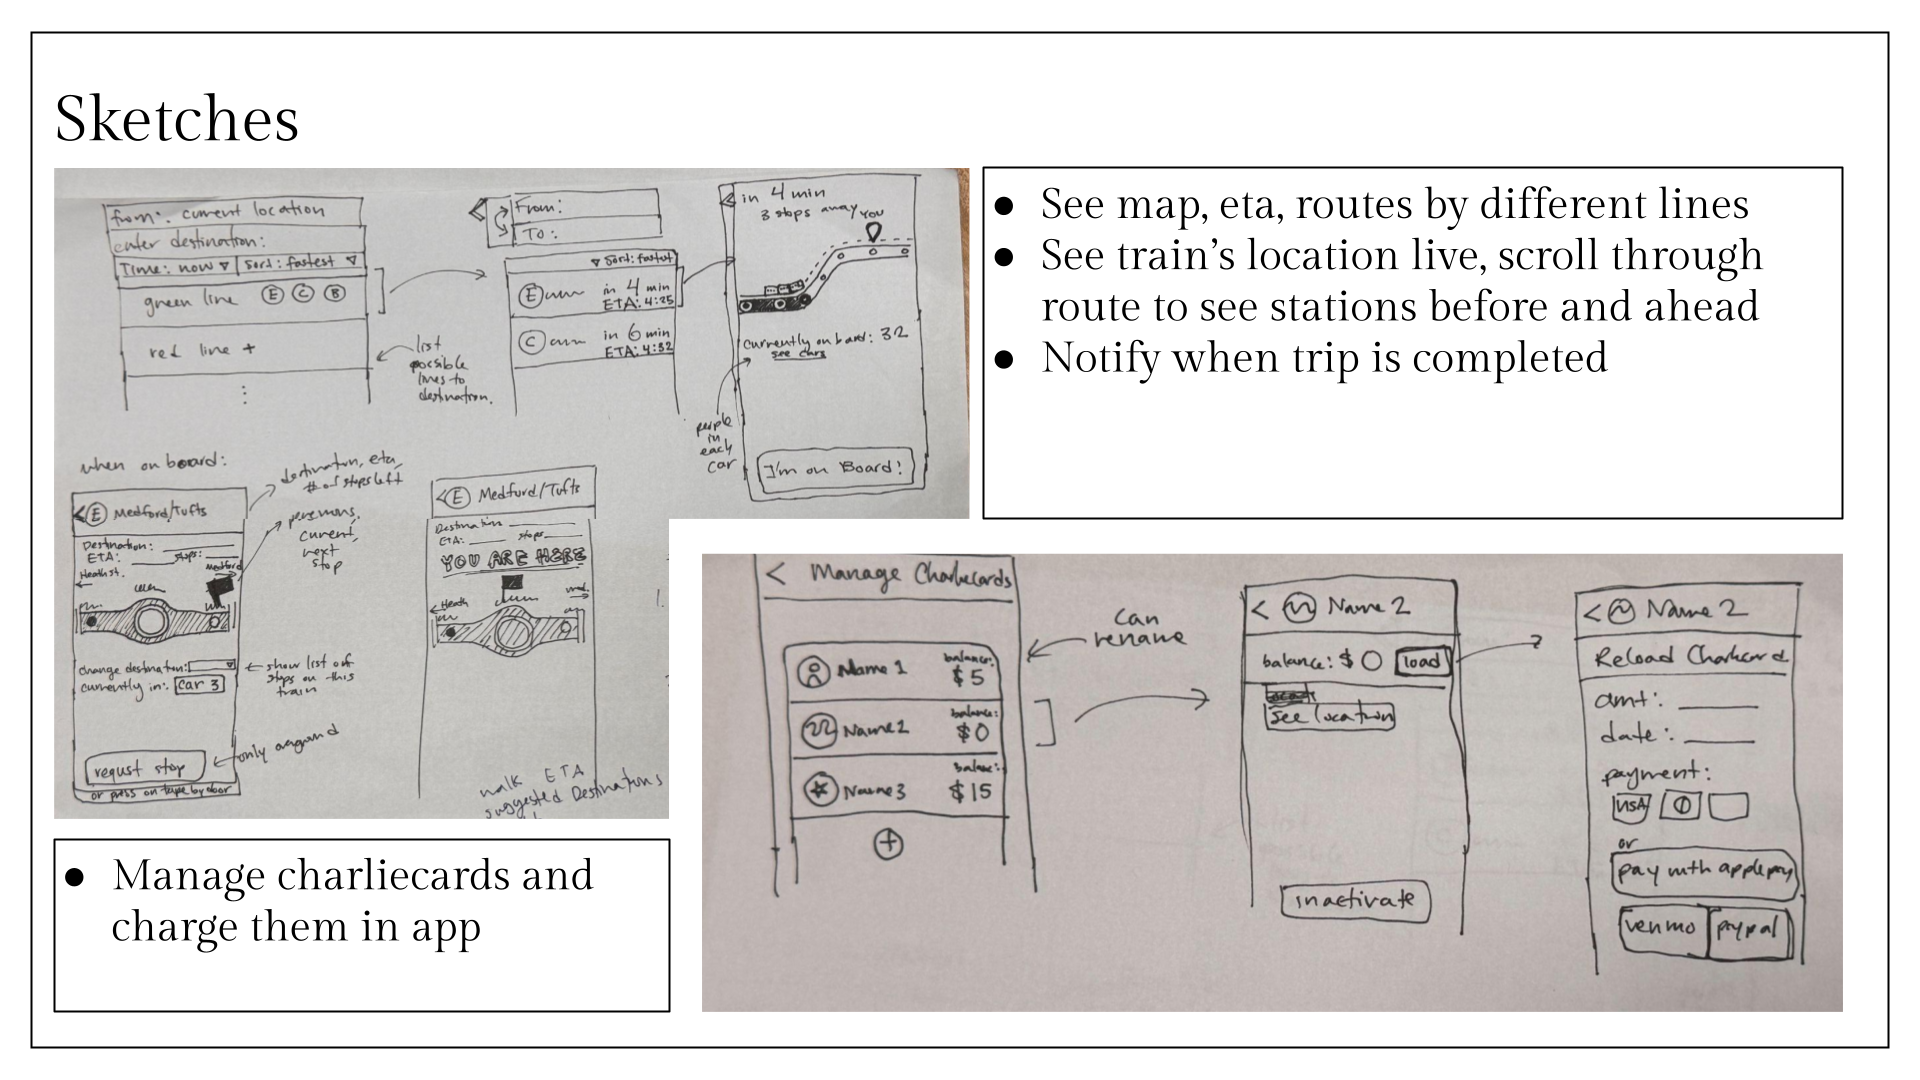 Sketches
from: current location
enter destination:
Time: now ▽ | Sort: fastest ▽
green line Ⓔ Ⓒ Ⓑ
red line +
list
possible
lines to
destination.
From:
To:
▽ Sort: fastest
Ⓔ in 4 min
ETA: 4:25
Ⓒ in 6 min
ETA: 4:32
in 4 min
3 stops away
YOU
currently on board: 32
see cars
people
in
each
car
I'm on Board!
● See map, eta, routes by different lines
● See train's location live, scroll through
route to see stations before and ahead
● Notify when trip is completed
when on board:
destination, eta,
# of stops left
< Ⓔ Medford/Tufts
Destination:
ETA: stops:
Heath st.
Medford
current,
next
stop
change destination: ▽
currently in: car 3
show list of
stops on this
train
requst stop
or press on tape by door
only
< Ⓔ Medford/Tufts
Destination
ETA: stops
YOU ARE HERE
Heath
med.
walk ETA
suggested Destinations
● Manage charliecards and
charge them in app
< Manage Charliecards
can
rename
Name 1 balance: $5
Name 2 balance: $0
Name 3 balance: $15
+
< Name 2
balance: $0 load
see location
inactivate
< Name 2
Reload Charliecard
amt:
date:
payment:
VISA
or
pay with applepay
venmo paypal